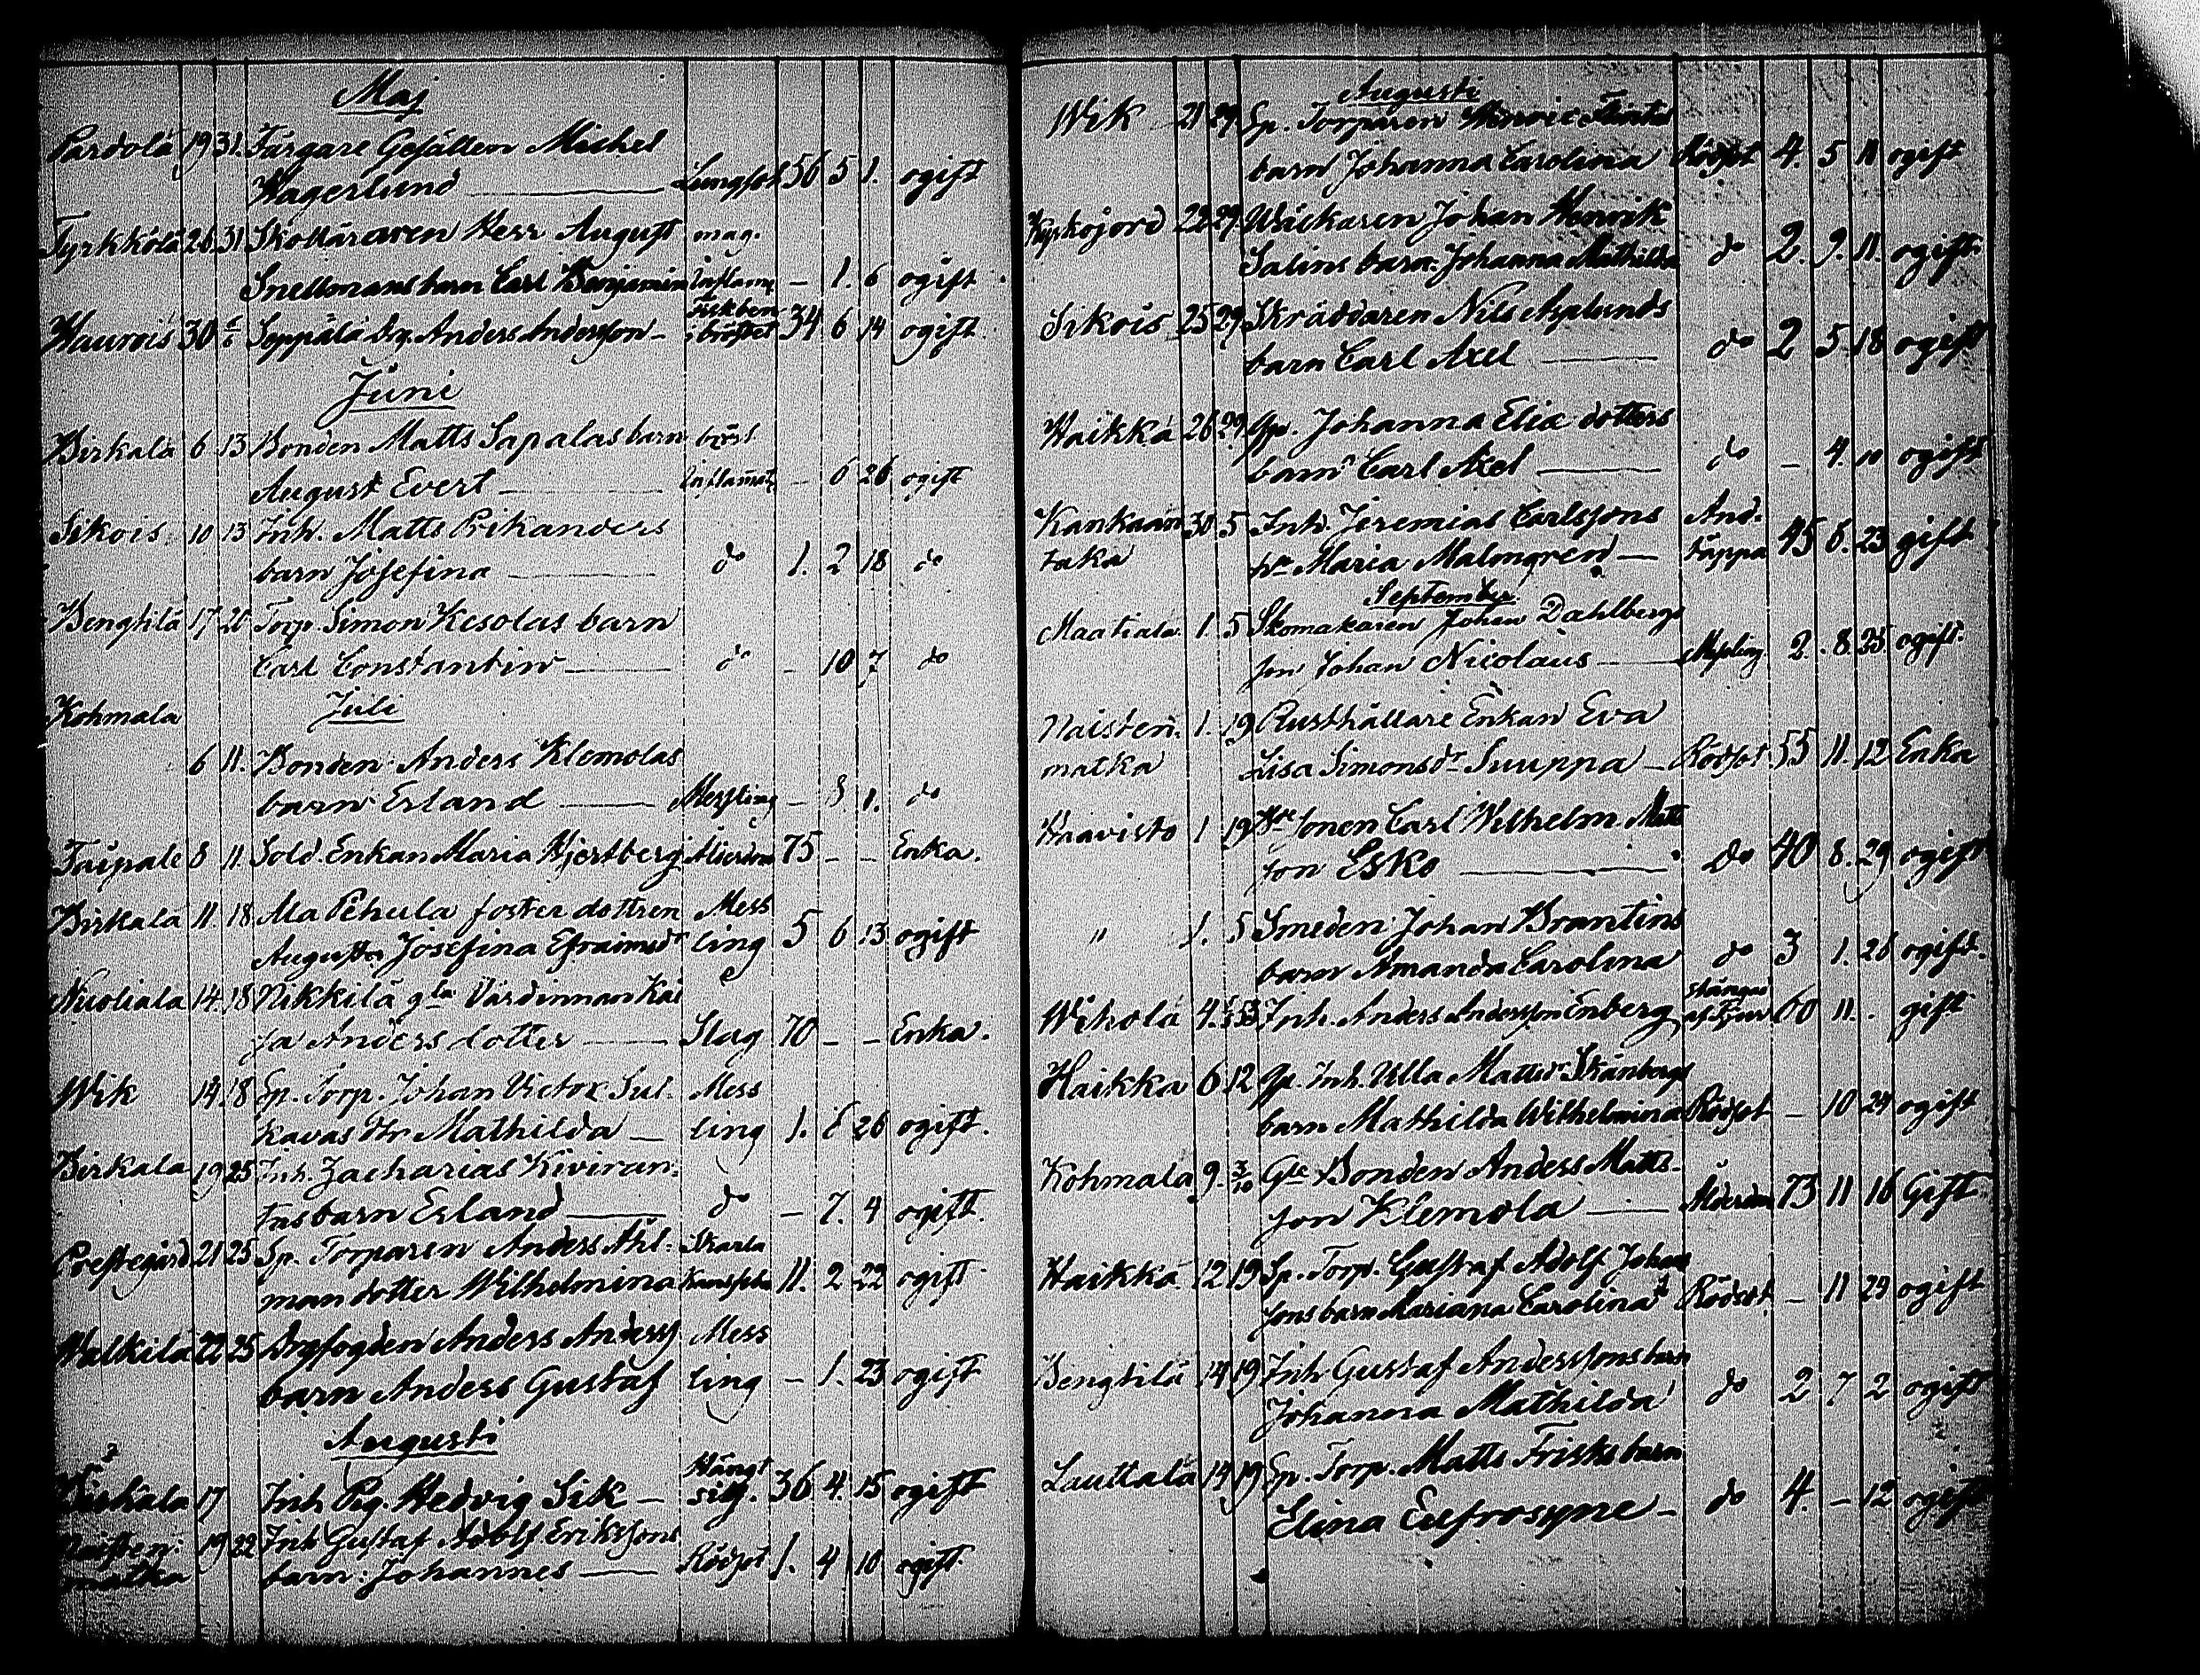 Maj
Pardola 19 31. Färgare Gesällen Michel
Hagerlund — Lungsot 56 5 1. ogift
Tyrkkölä 28 31 Herr August mag.
Snellmans barn Carl Benjamin Inflam — 1. 6 ogift
Haurois 30 Seppälä drg. Anders Andersson — i bröstet 34 6 14 ogift
Juni
Birkala 6 13 Bonden Matts Sapalas barn bröst
August Evert — Inflamat — 6 26 ogift
Sikois 10 13 Inh. Matts Rikanders
barn Josefina — do 1. 2 18 do
Bengtilä 17 20 Torp. Simon Kesolas barn
Carl Constantin — do — 10 7 do
Kohmala Juli
6 11. Bonden Anders Klemolas
barn Erland — Messling — 8 1. do
Taipale 8 11. Sold. Enkan Maria Hjertberg Ålderdom 75 — — Enka.
Birkala 11. 18 Ala Pehula foster dottren Mess
Augusta Josefina Efraimsdr ling 5 6 13 ogift
Nuoliala 14. 18 Nikkilä gla Värdinnan Kai
sa Anders dotter — Slag 70 — — Enka.
Wik 14. 18 Sp. Torp. Johan Victor Sul- Mess
kavas dr Mathilda — ling 1. 8 26 ogift.
Birkala 19 25 Inh. Zacharias Kiviran-
tas barn Erland — do — 7. 4 ogift.
Prestegård 21 25 Sp. Torparen Anders Ahl- Skarla
man dotter Wilhelmina 11. 2 22 ogift
Halkila 22 25 Drgfogden Anders Anderss Mess
barn Anders Gustaf ling — 1. 23 ogift
Augusti
Birkala 17 Inh. Pig. Hedvig Sik — Hängt sig. 36 4. 15 ogift
Naisten- 19 22 Inh Gustaf Adolf Erikssons
matka barn Johannes — Rödsot 1. 4 10 ogift
Augusti
Wik 21 29 Sp. Torparen Henric
barn Johanna Carolina Rödsot 4. 5 11 ogift
Kyrkojord 22 29 Wäckaren Johan Henrik
Salins barn Johanna Mathilda do 2. 9. 11. ogift.
Sikois 25 29 Skräddaren Nils Asplunds
barn Carl Axel — do 2 5 18 ogift
Haikka 26 29 Gp. Johanna Elia dotters
barn Carl Axel — do — 4. 10 ogift
Kankaan 30. 5 Inh. Jeremias Carlssons And-
taka hu Maria Malmgren — täppa 45 8. 23 gift
September
Maatiala 1. 5 Skomakaren Johan Dahlbergs
son Johan Nicolaus — Messling 2. 8. 25 ogift.
Naisten- 1. 19 Rusthållare Enkan Eva
matka Lisa Simonsdr Suuppa — Rödsot 55 11. 12 Enka
Haavisto 1 19 Bde sonen Carl Wilhelm Matt
son Esko — do 40 8. 29 ogift
" 1. 5 Smeden Johan Brantins
barn Amanda Carolina do 3 1. 28 ogift.
Wihola 4. Inh. Anders Andersson Enberg stångad af Tjur 60 11. . gift
Haikka 6 12 Gp. Inh. Ulla Mattsdr Skänbergs
barn Mathilda Wilhelmina Rödsot — 10 24 ogift
Kohmala 9. 3/10 Gle Bonden Anders Matts-
son Klemola — Ålderdom 73 11 16 Gift.
Haikka 12 19 Sp. Torp. Gustaf Adolf Johan
sons barn Mariana Carolina Rödsot — 11 29 ogift
Bengtilä 14 19 Inh Gustaf Anderssons barn
Johanna Mathilda do 2 7 2 ogift
Lauttala 14 19 Sp. Torp. Matts Frisks barn
Elina Eufrosyne — do 4. — 12 ogift